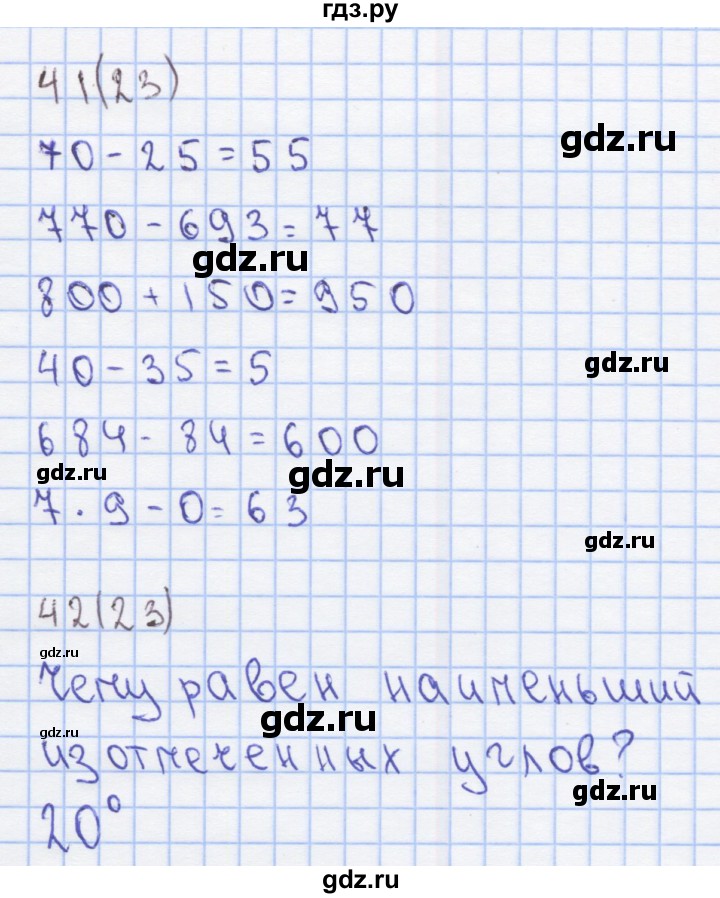 гдз.ру
41(23)
gdz.ru
70 - 25 = 55
770 - 693 = 77
gdz.ru
800 + 150 = 950
40 - 35 = 5
gdz.ru
684 - 84 = 600
gdz.ru
gdz.ru
7 · 9 - 0 = 63
gdz.ru
42(23)
gdz.ru
Чему равен наименьший
gdz.ru
gdz.ru
из отмеченных углов?
gdz.ru
20°
gdz.ru